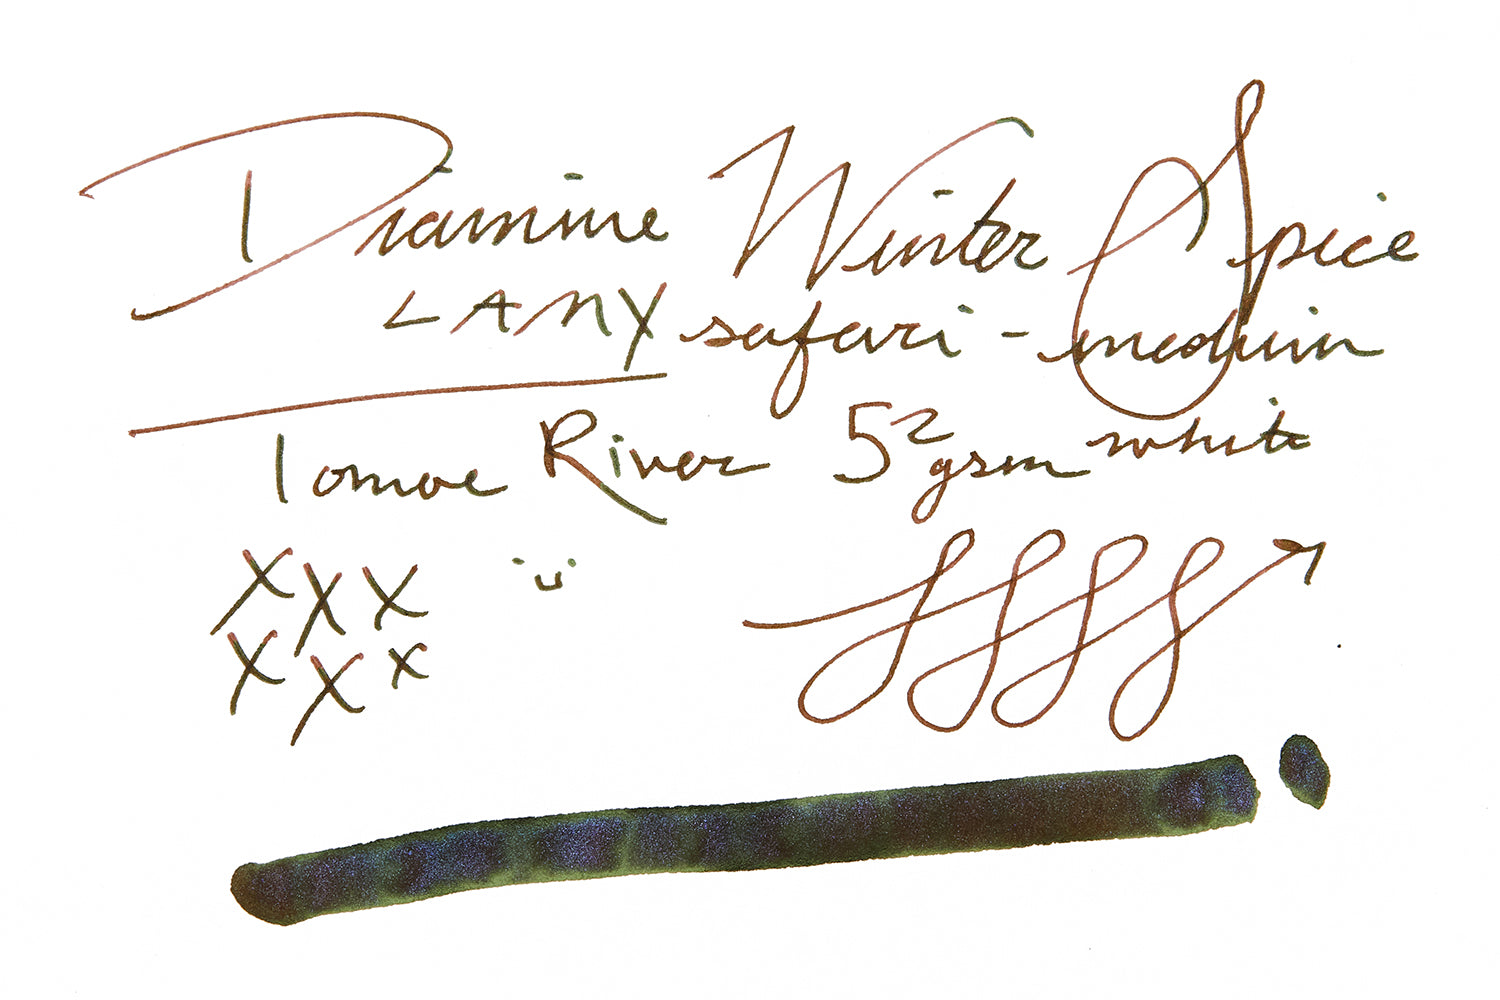 Diamine Winter Spice
LAMY safari - medium
Tomoe River 52 gsm white
x x x
x x x